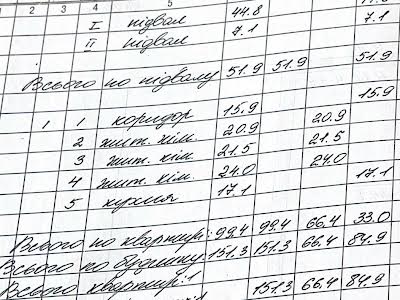 1 2 3 4 5 6 7 8
I підвал 44.8
II підвал 7.1 7.1
Всього по підвалу 51.9 51.9 51.9
1 1 коридор 15.9 15.9
2 жит. кім. 20.9 20.9
3 жит. кім. 21.5 21.5
4 жит. кім. 24.0 24.0
5 кухня 17.1 17.1
Всього по квартирі: 99.4 99.4 66.4 33.0
Всього по будинку 151.3 151.3 66.4 84.9
Всього квартири: 1 151.3 66.4 84.9